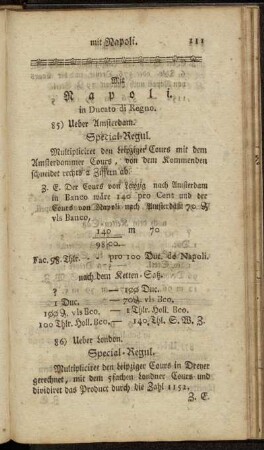 mit Napoli. 111
Mit
Napoli.
in Ducato di Regno.
85) Ueber Amsterdam.
Special-Regul.
Multipliciret den Leipziger Cours mit dem
Amsterdammer Cours, von dem Kommenden
schneidet rechts 2 Ziffern ab.
Z. E. Der Cours von Leipzig nach Amsterdam
in Banco wäre 140 pro Cent und der
Cours von Napoli nach Amsterdam 70 ₰
vls Banco,
140 m 70
98|00.
Fac. 98. Thlr. pro 100 Duc. de Napoli.
nach dem Ketten-Satz.
? — 100 Duc.
1 Duc. — 70 ₰ vls Bco.
100 ₰ vls Bco. — 1 Thlr. Holl. Bco.
100 Thlr. Holl. Bco. — 140 Thl. S. W. Z.
86) Ueber London.
Special-Regul.
Multipliciret den Leipziger Cours in Dreyer
gerechnet, mit dem 5fachen Londner Cours und
dividiret das Product durch die Zahl 1152.
Z. E.